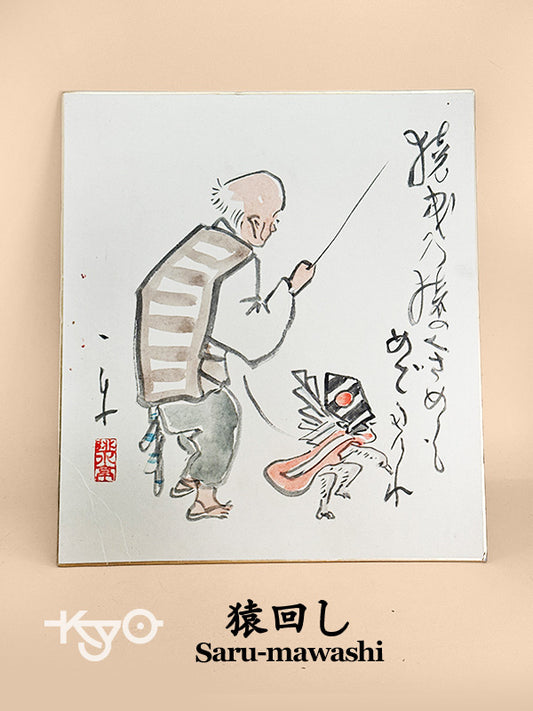 猿曳乃猿のくさめも
めでたけれ
KYO
猿回し
Saru-mawashi